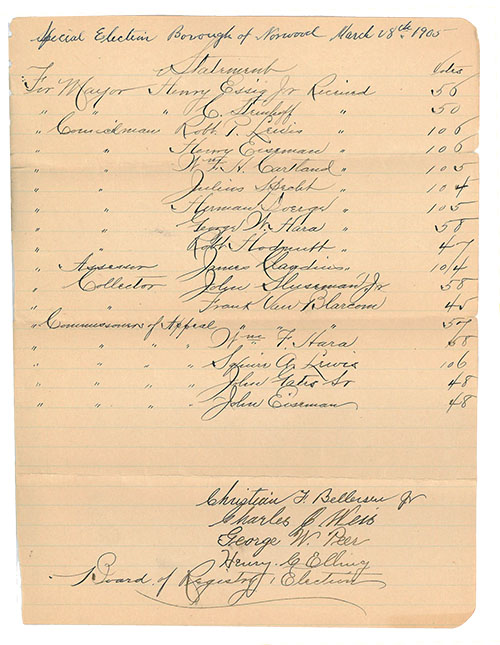 Special Election Borough of Norwood March 28th 1905
Statement Votes
For Mayor Henry Essig Jr Received 56
" " C. " 50
" Councilman Robt T. Lewis " 106
" " Henry Eiseman " 106
" " Wm F. H. Cartland " 105
" " Julius " 104
" " Herman Doerge " 105
" " George W. Hara " 58
" " Robt " 47
" Assessor James " 104
" Collector John Jr 58
" " Frank Van Blarcom 45
" Commissioners of Appeal " " 57
" " " " Wm F. Hara 58
" " " " Squire G. Lewis 106
" " " " John Yates Sr 48
" " " " John Eiseman 48
Christian F. Bellersen Jr
Charles C Weis
George W. Peer
Henry C Elling
Board of Registry, Election